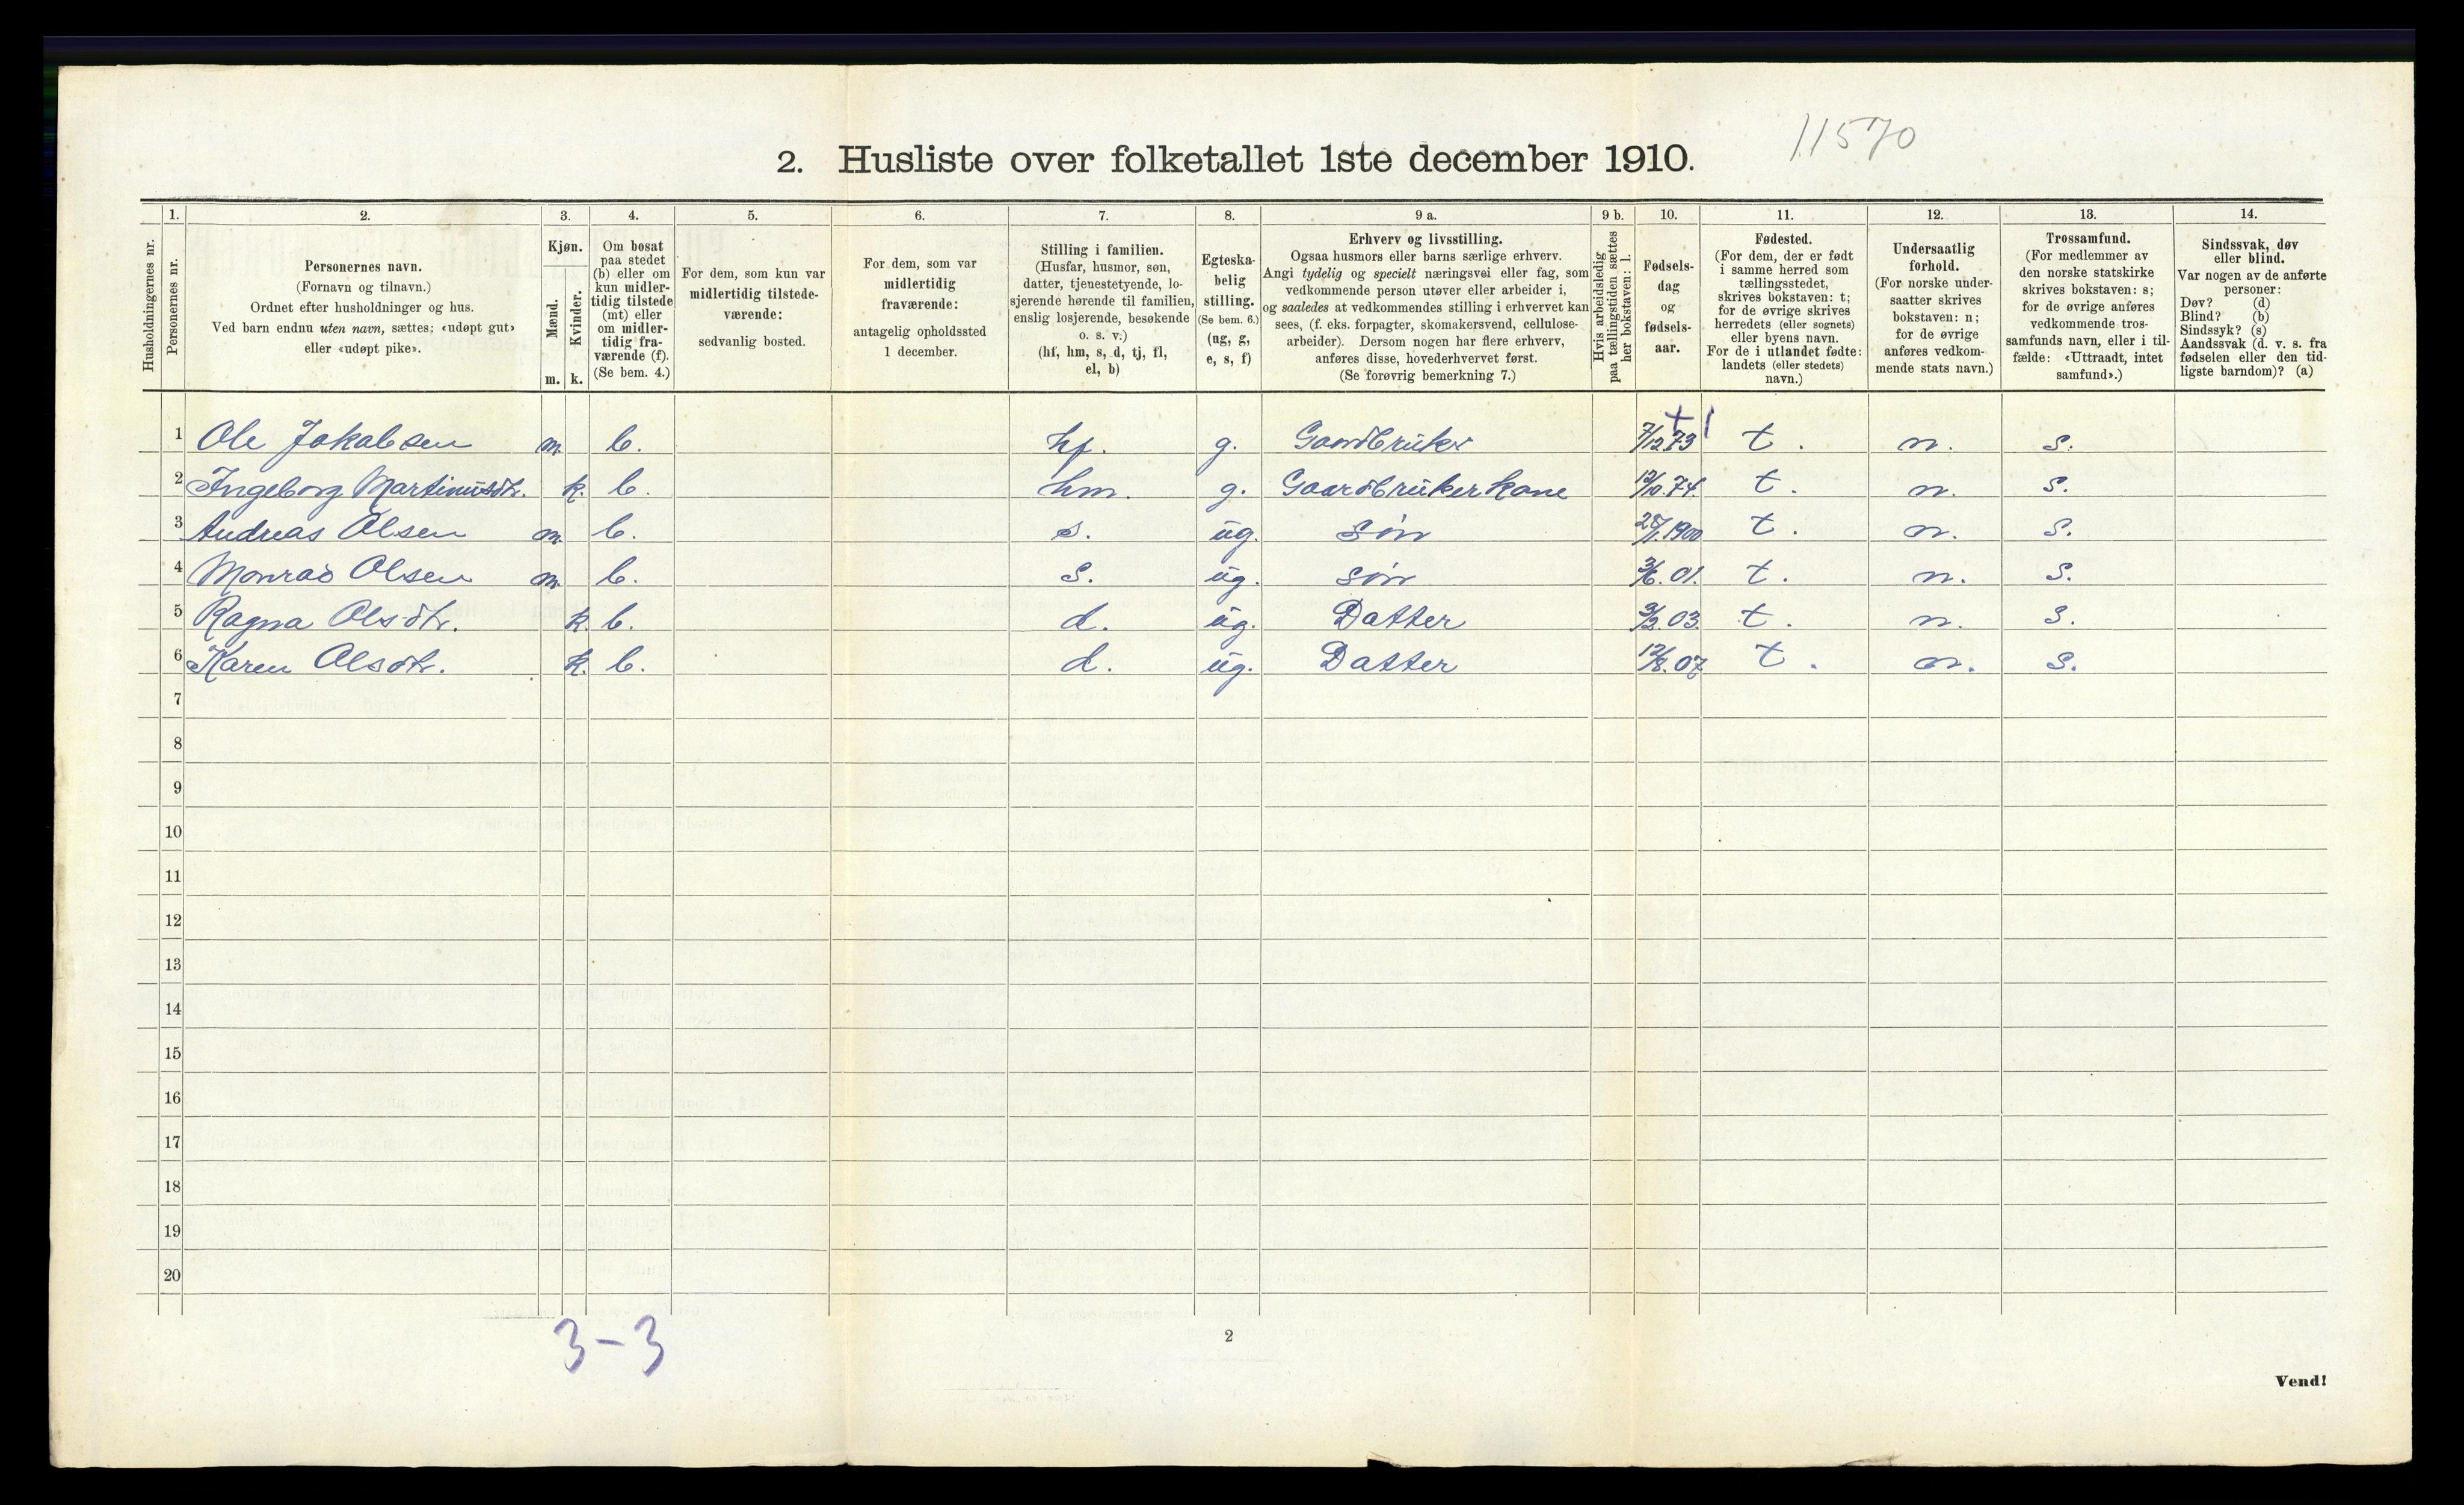 11570
2. Husliste over folketallet 1ste december 1910.
Husholdningernes nr.
1.
Personernes nr.
2.
Personernes navn.
(Fornavn og tilnavn.)
Ordnet efter husholdninger og hus.
Ved barn endnu uten navn, sættes: «udøpt gut»
eller «udøpt pike».
3.
Kjøn.
Mænd.
Kvinder.
m. k.
4.
Om bosat
paa stedet
(b) eller om
kun midler-
tidig tilstede
(mt) eller
om midler-
tidig fra-
værende (f).
(Se bem. 4.)
5.
For dem, som kun var
midlertidig tilstede-
værende:
sedvanlig bosted.
6.
For dem, som var
midlertidig
fraværende:
antagelig opholdssted
1 december.
7.
Stilling i familien.
(Husfar, husmor, søn,
datter, tjenestetyende, lo-
sjerende hørende til familien,
enslig losjerende, besøkende
o. s. v.)
(hf, hm, s, d, tj, fl,
el, b)
8.
Egteska-
belig
stilling.
(Se bem. 6.)
(ug, g,
e, s, f)
9 a.
Erhverv og livsstilling.
Ogsaa husmors eller barns særlige erhverv.
Angi tydelig og specielt næringsvei eller fag, som
vedkommende person utøver eller arbeider i,
og saaledes at vedkommendes stilling i erhvervet kan
sees, (f. eks. forpagter, skomakersvend, cellulose-
arbeider). Dersom nogen har flere erhverv,
anføres disse, hovederhvervet først.
(Se forøvrig bemerkning 7.)
9 b.
Hvis arbeidsledig
paa tællingstiden sættes
her bokstaven: l.
10.
Fødsels-
dag
og
fødsels-
aar.
11.
Fødested.
(For dem, der er født
i samme herred som
tællingsstedet,
skrives bokstaven: t;
for de øvrige skrives
herredets (eller sognets)
eller byens navn.
For de i utlandet fødte:
landets (eller stedets)
navn.)
12.
Undersaatlig
forhold.
(For norske under-
saatter skrives
bokstaven: n;
for de øvrige
anføres vedkom-
mende stats navn.)
13.
Trossamfund.
(For medlemmer av
den norske statskirke
skrives bokstaven: s;
for de øvrige anføres
vedkommende tros-
samfunds navn, eller i til-
fælde: «Uttraadt, intet
samfund».)
14.
Sindssvak, døv
eller blind.
Var nogen av de anførte
personer:
Døv? (d)
Blind? (b)
Sindssyk? (s)
Aandssvak (d. v. s. fra
fødselen eller den tid-
ligste barndom)? (a)
1 Ole Jakobsen m. b. hf. g. Gardbruker 7/12 73 t. n. s.
2 Ingeborg Martinusdtr. k. b. hm. g. Gaardbrukerkone 74. t. n. s.
3 Andreas Olsen m. b. s. ug. Søn 1900 t. n. s.
4 Monrad Olsen m. b. s. ug. søn 3/6. 01. t. n. s.
5 Ragna Olsdtr. k. b. d. ug. Datter 3/2. 03. t. n. s.
6 Karen Olsdtr. k. b. d. ug. Datter 12/8. 07 t. n. s.
7
8
9
10
11
12
13
14
15
16
17
18
19
20
3-3
2
Vend!